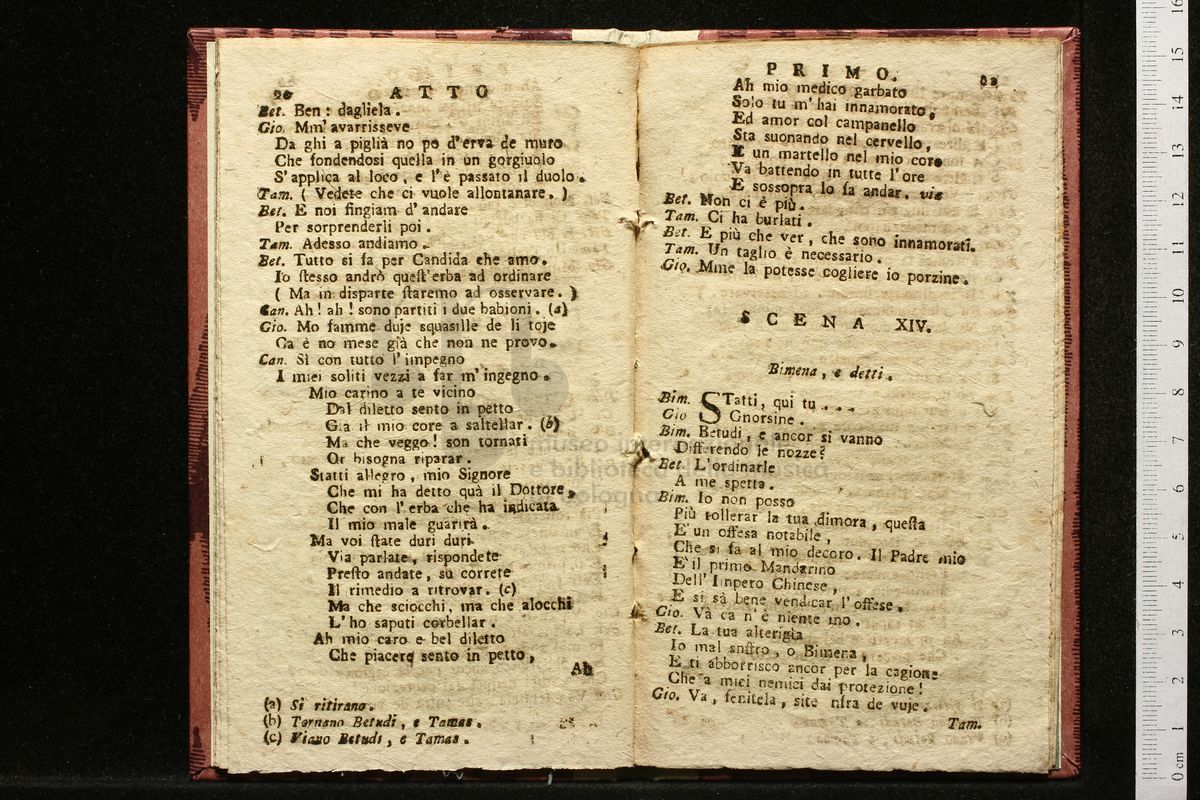 20 ATTO
Bet. Ben: dagliela.
Gio. Mm' avarrisseve
Da ghi a piglià no po d'erva de muro
Che fondendosi quella in un gorgiuolo
S'applica al loco, e l'è passato il duolo.
Tam. ( Vedete che ci vuole allontanare. )
Bet. E noi fingiam d'andare
Per sorprenderli poi.
Tam. Adesso andiamo.
Bet. Tutto si fa per Candida che amo.
Io stesso andrò quest'erba ad ordinare
( Ma in disparte staremo ad osservare. )
Can. Ah! ah! sono partiti i due babioni. (a)
Gio. Mo famme duje squasille de li toje
Ca è no mese già che non ne provo.
Can. Sì con tutto l'impegno
I miei soliti vezzi a far m'ingegno.
Mio carino a te vicino
Dal diletto sento in petto
Già il mio core a saltellar. (b)
Ma che veggo! son tornati
Or bisogna riparar.
Statti allegro, mio Signore
Che mi ha detto quà il Dottore,
Che con l'erba che ha indicata
Il mio male guarirà.
Ma voi state duri duri
Via parlate, rispondete
Presto andate, su correte
Il rimedio a ritrovar. (c)
Ma che sciocchi, ma che alocchi
L'ho saputi corbellar.
Ah mio caro e bel diletto
Che piacere sento in petto,
Ah
(a) Si ritirano.
(b) Tornano Betudi, e Tamas.
(c) Viano Betudi, e Tamas.
PRIMO.
Ah mio medico garbato
Solo tu m'hai innamorato,
Ed amor col campanello
Sta suonando nel cervello,
E un martello nel mio core
Va battendo in tutte l'ore
E sossopra lo fa andar. via
Bet. Non ci è più.
Tam. Ci ha burlati.
Bet. E più che ver, che sono innamorati.
Tam. Un taglio è necessario.
Gio. Mme la potesse cogliere io porzine.
SCENA XIV.
Bimena, e detti.
Bim. STatti, qui tu....
Gio Gnorsine.
Bim. Betudi, e ancor si vanno
Differendo le nozze?
Bet. L'ordinarle
A me spetta.
Bim. Io non posso
Più tollerar la tua dimora, questa
E' un offesa notabile,
Che si fa al mio decoro. Il Padre mio
E' il primo Mandarino
Dell' Inpero Chinese,
E si sà bene vendicar l'offese.
Gio. Và ca n'è niente mo.
Bet. La tua alterigia
Io mal soffro, o Bimena,
E ti abborrisco ancor per la cagione
Che a miei nemici dai protezione!
Gio. Va, fenitela, site nfra de vuje.
Tam.
museo internazionale
e biblioteca della musica
di bologna